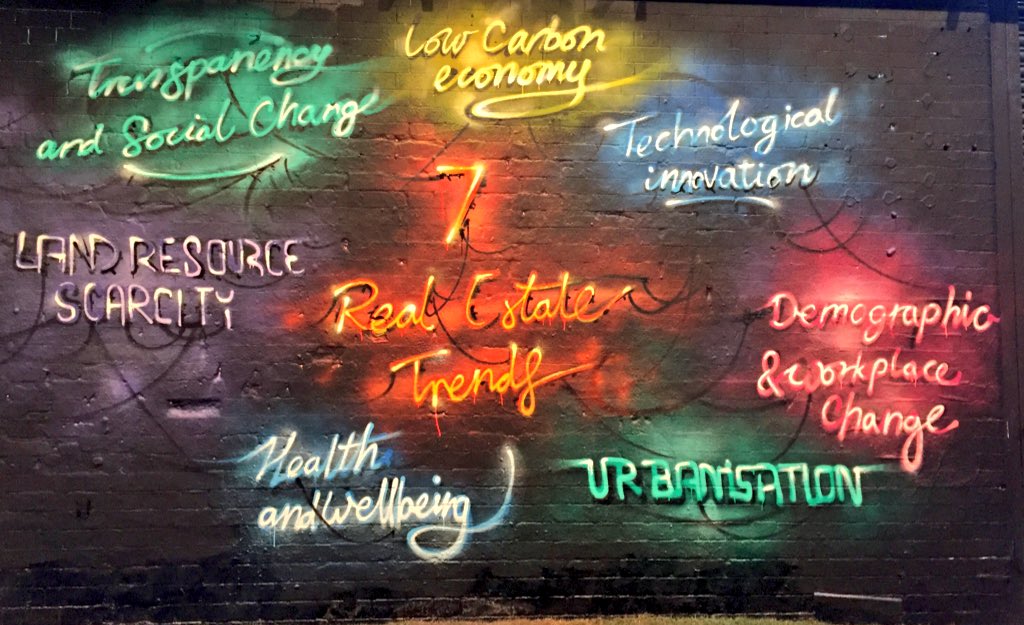 Transparency
and Social Change
Low Carbon
economy
Technological
innovation
7
Real Estate
Trends
LAND RESOURCE
SCARCITY
Demographic
& workplace
Change
Health
and wellbeing
URBANISATION